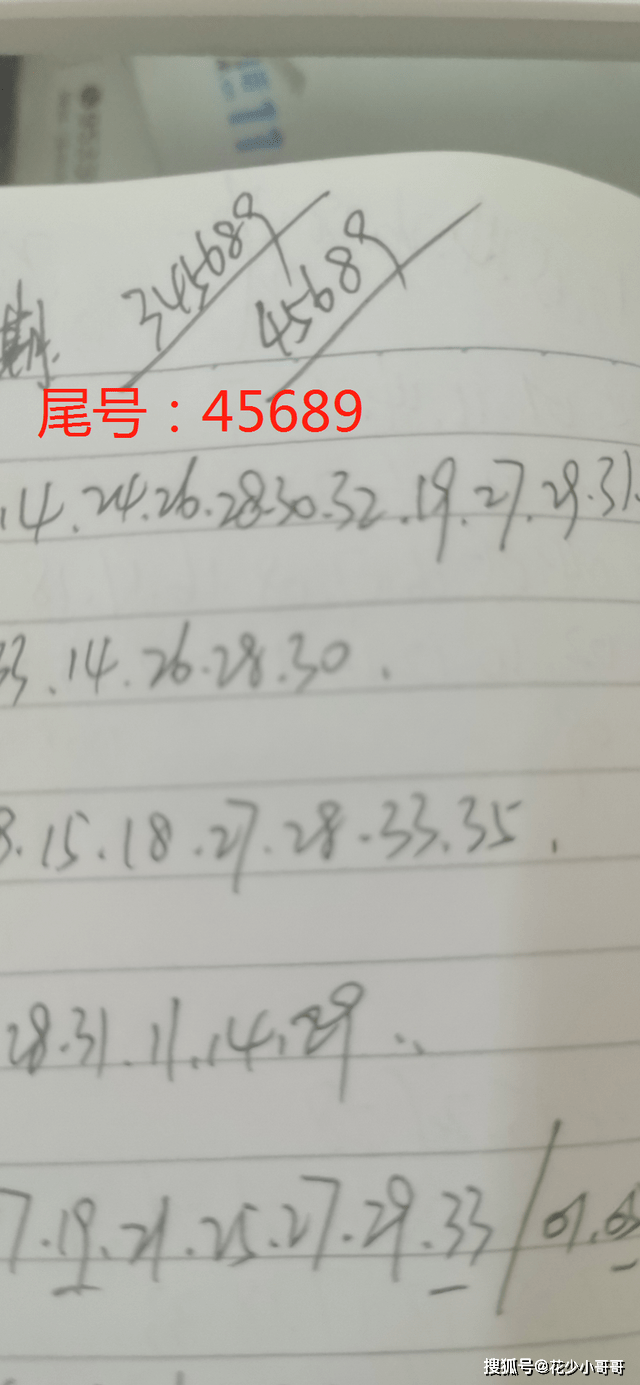 345689
45689
期.
尾号：45689
14.24.26.28.30.32.19.27.29.31.
33.14.26.28.30.
3.15.18.27.28.33.35.
28.31.11.14.29..
7.19.21.25.27.29.33/01.05
搜狐号@花少小哥哥